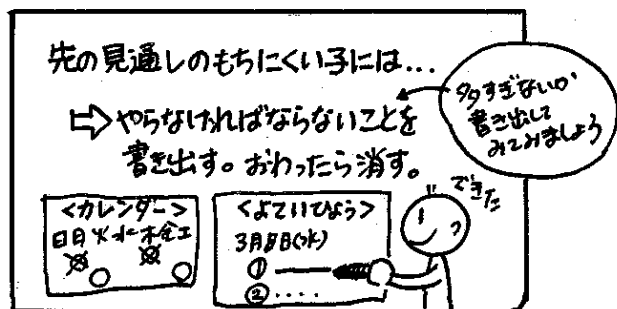 先の見通しのもちにくい子には…
⇨やらなければならないことを
書き出す。おわったら消す。
多すぎないか
書き出して
みてみましょう
<カレンダー>
日月火水木金土
<よていひょう>
3月8日(水)
①
②‥‥
できた